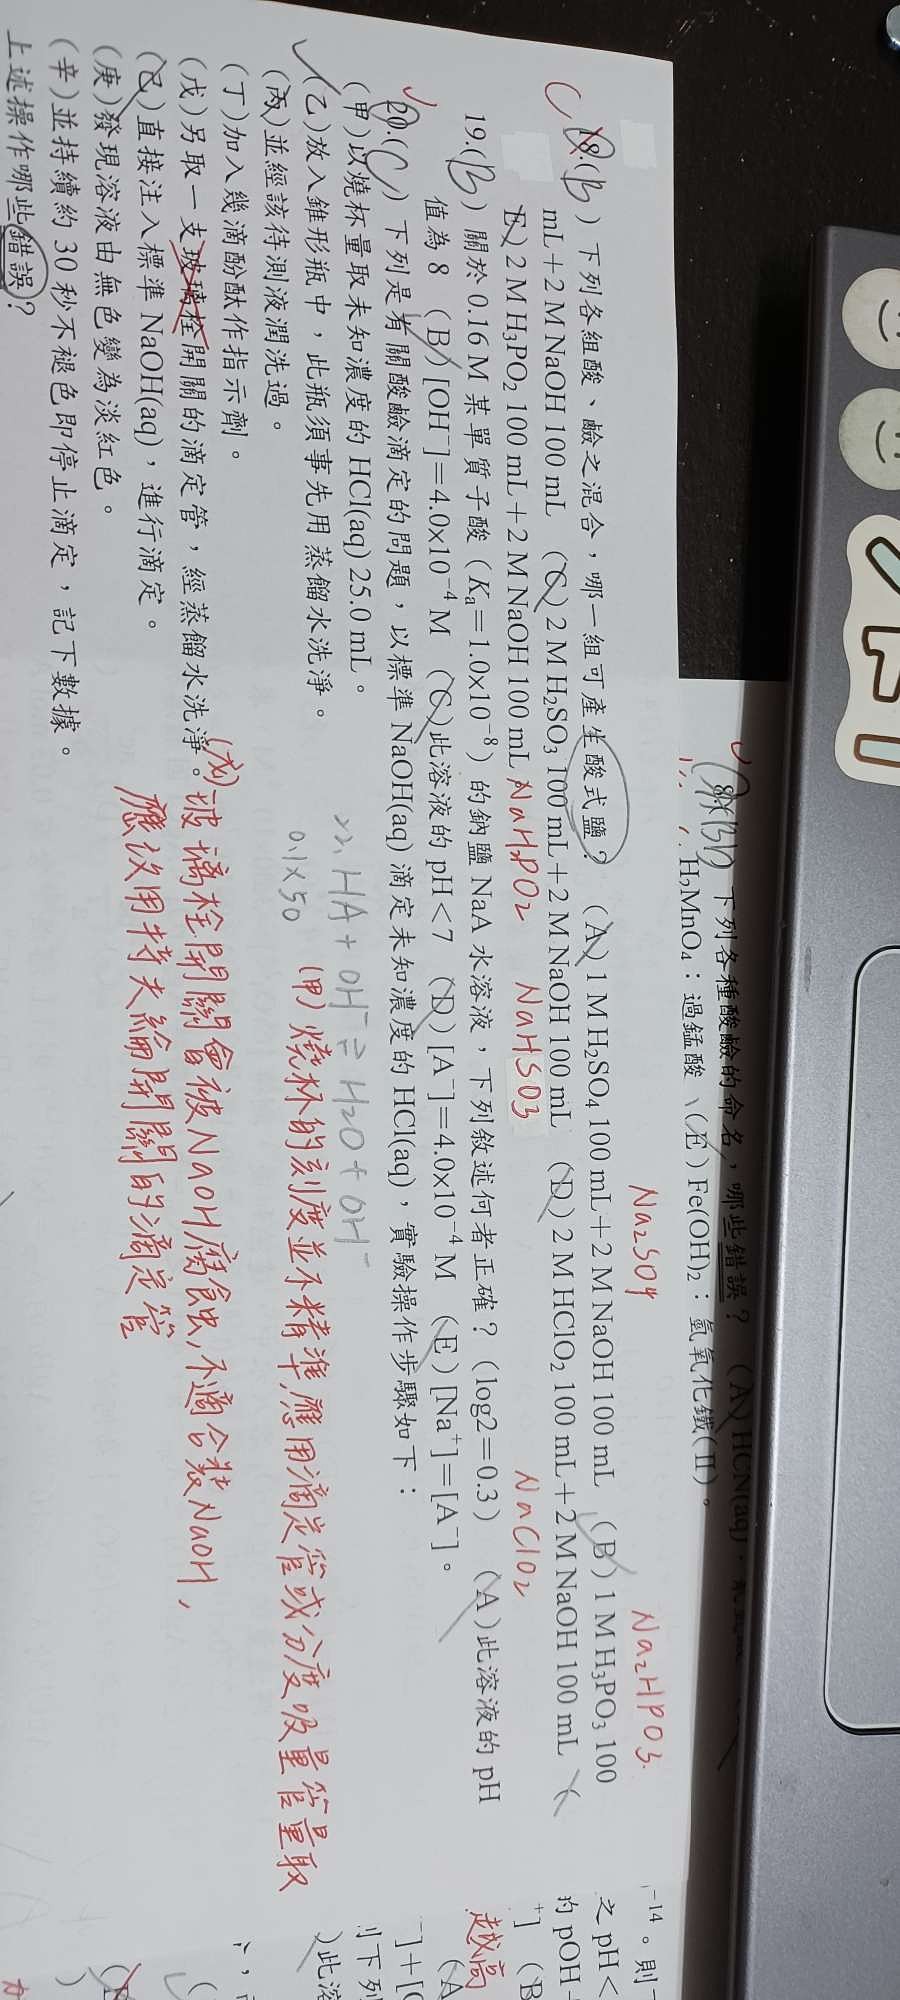 18.(B) 下列各種酸鹼的命名，哪些錯誤？ (A) HCN(aq)：
H₂MnO₄：過錳酸 (E) Fe(OH)₂：氫氧化鐵(Ⅱ)。
Na₂SO₄ Na₂HPO₃
C 18.(B) 下列各組酸、鹼之混合，哪一組可產生酸式鹽？ (A) 1 M H₂SO₄ 100 mL＋2 M NaOH 100 mL (B) 1 M H₃PO₃ 100
mL＋2 M NaOH 100 mL (C) 2 M H₂SO₃ 100 mL＋2 M NaOH 100 mL (D) 2 M HClO₂ 100 mL＋2 M NaOH 100 mL
(E) 2 M H₃PO₂ 100 mL＋2 M NaOH 100 mL NaH₂PO₂ NaHSO₃ NaClO₂
19.(B) 關於 0.16 M 某單質子酸（Ka＝1.0×10⁻⁸）的鈉鹽 NaA 水溶液，下列敘述何者正確？（log2＝0.3） (A) 此溶液的 pH
值為 8 (B) [OH⁻]＝4.0×10⁻⁴ M (C) 此溶液的 pH＜7 (D) [A⁻]＝4.0×10⁻⁴ M (E) [Na⁺]＝[A⁻]。
20.(C) 下列是有關酸鹼滴定的問題，以標準 NaOH(aq) 滴定未知濃度的 HCl(aq)，實驗操作步驟如下：
(甲)以燒杯量取未知濃度的 HCl(aq) 25.0 mL。
22. HA + OH⁻ ⇌ H₂O + OH⁻
(乙)放入錐形瓶中，此瓶須事先用蒸餾水洗淨。
0.1×50 (甲) 燒杯的刻度並不精準，應用滴定管或分度吸量管量取
(丙)並經該待測液潤洗過。
(丁)加入幾滴酚酞作指示劑。
(戊)另取一支玻璃栓開關的滴定管，經蒸餾水洗淨。
(戊) 玻璃栓開關會被NaOH腐蝕，不適合裝NaOH，
應改用特夫綸開關的滴定管
(己)直接注入標準 NaOH(aq)，進行滴定。
(庚)發現溶液由無色變為淡紅色。
(辛)並持續約 30 秒不褪色即停止滴定，記下數據。
上述操作哪些錯誤？
⁻¹⁴。則
之 pH＜
的 pOH
越高
]＋[
下列
此溶